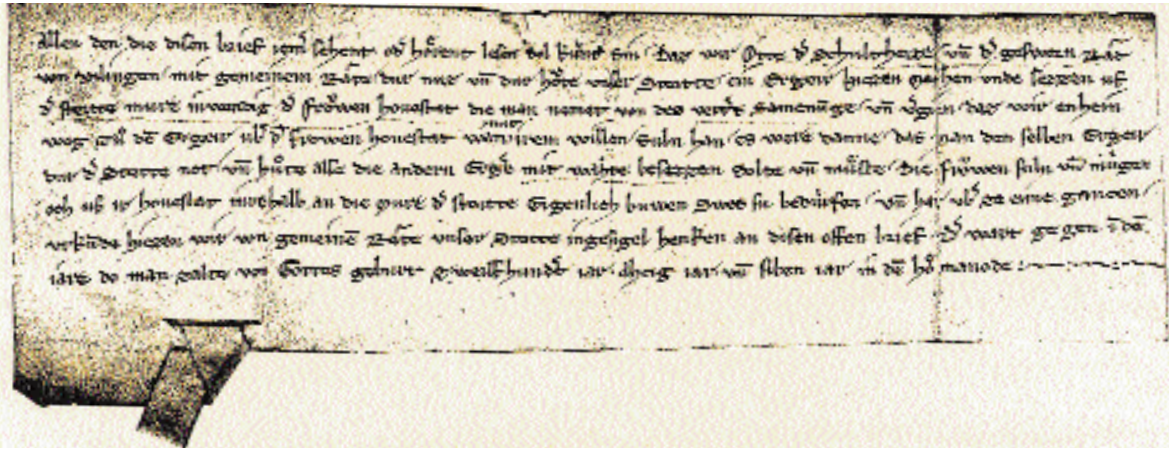 Allen den die disen brief iem̄ sehent od̾ hoͤrent lesen sol kunt sin Das wir Otte d̾ Schultheize vn̄ d̾ gesworn Rât
von vilingen mit gemeinem Râte dur nie vn̄ dur hvͦte vnser Stette ein Ergger hiezen machen vnde sezzen uf
d̾ stette mure inwendig d̾ froͮwen hovestat die man nemet von des Samenunge vn̄ das wir enhein
weg den Ergger ub̾ d̾ frowen hovestat mit ir willen suln han es were danne das man den selben Ergger
dur d̾ Stette not vn̄ hvͦte alse die andern Ergg̾ mit wahte besezzen solte vn̄ muͤste die froͮwen suln vn̄ mugen
och uf ir hovestat inrehalb an die mure d̾ stette Eigenlich buwen Swes si bedurfen vn̄ ub̾ ein ganzen
urkunde hiezen wir von gemeinē Râte vnser Stette ingesigel henken an disen offen brief d̾ wart gegen ī dē
iare do man zalte von Gottes geburt zweilf hund̾t iar drizig iar vn̄ siben iar in dē manode